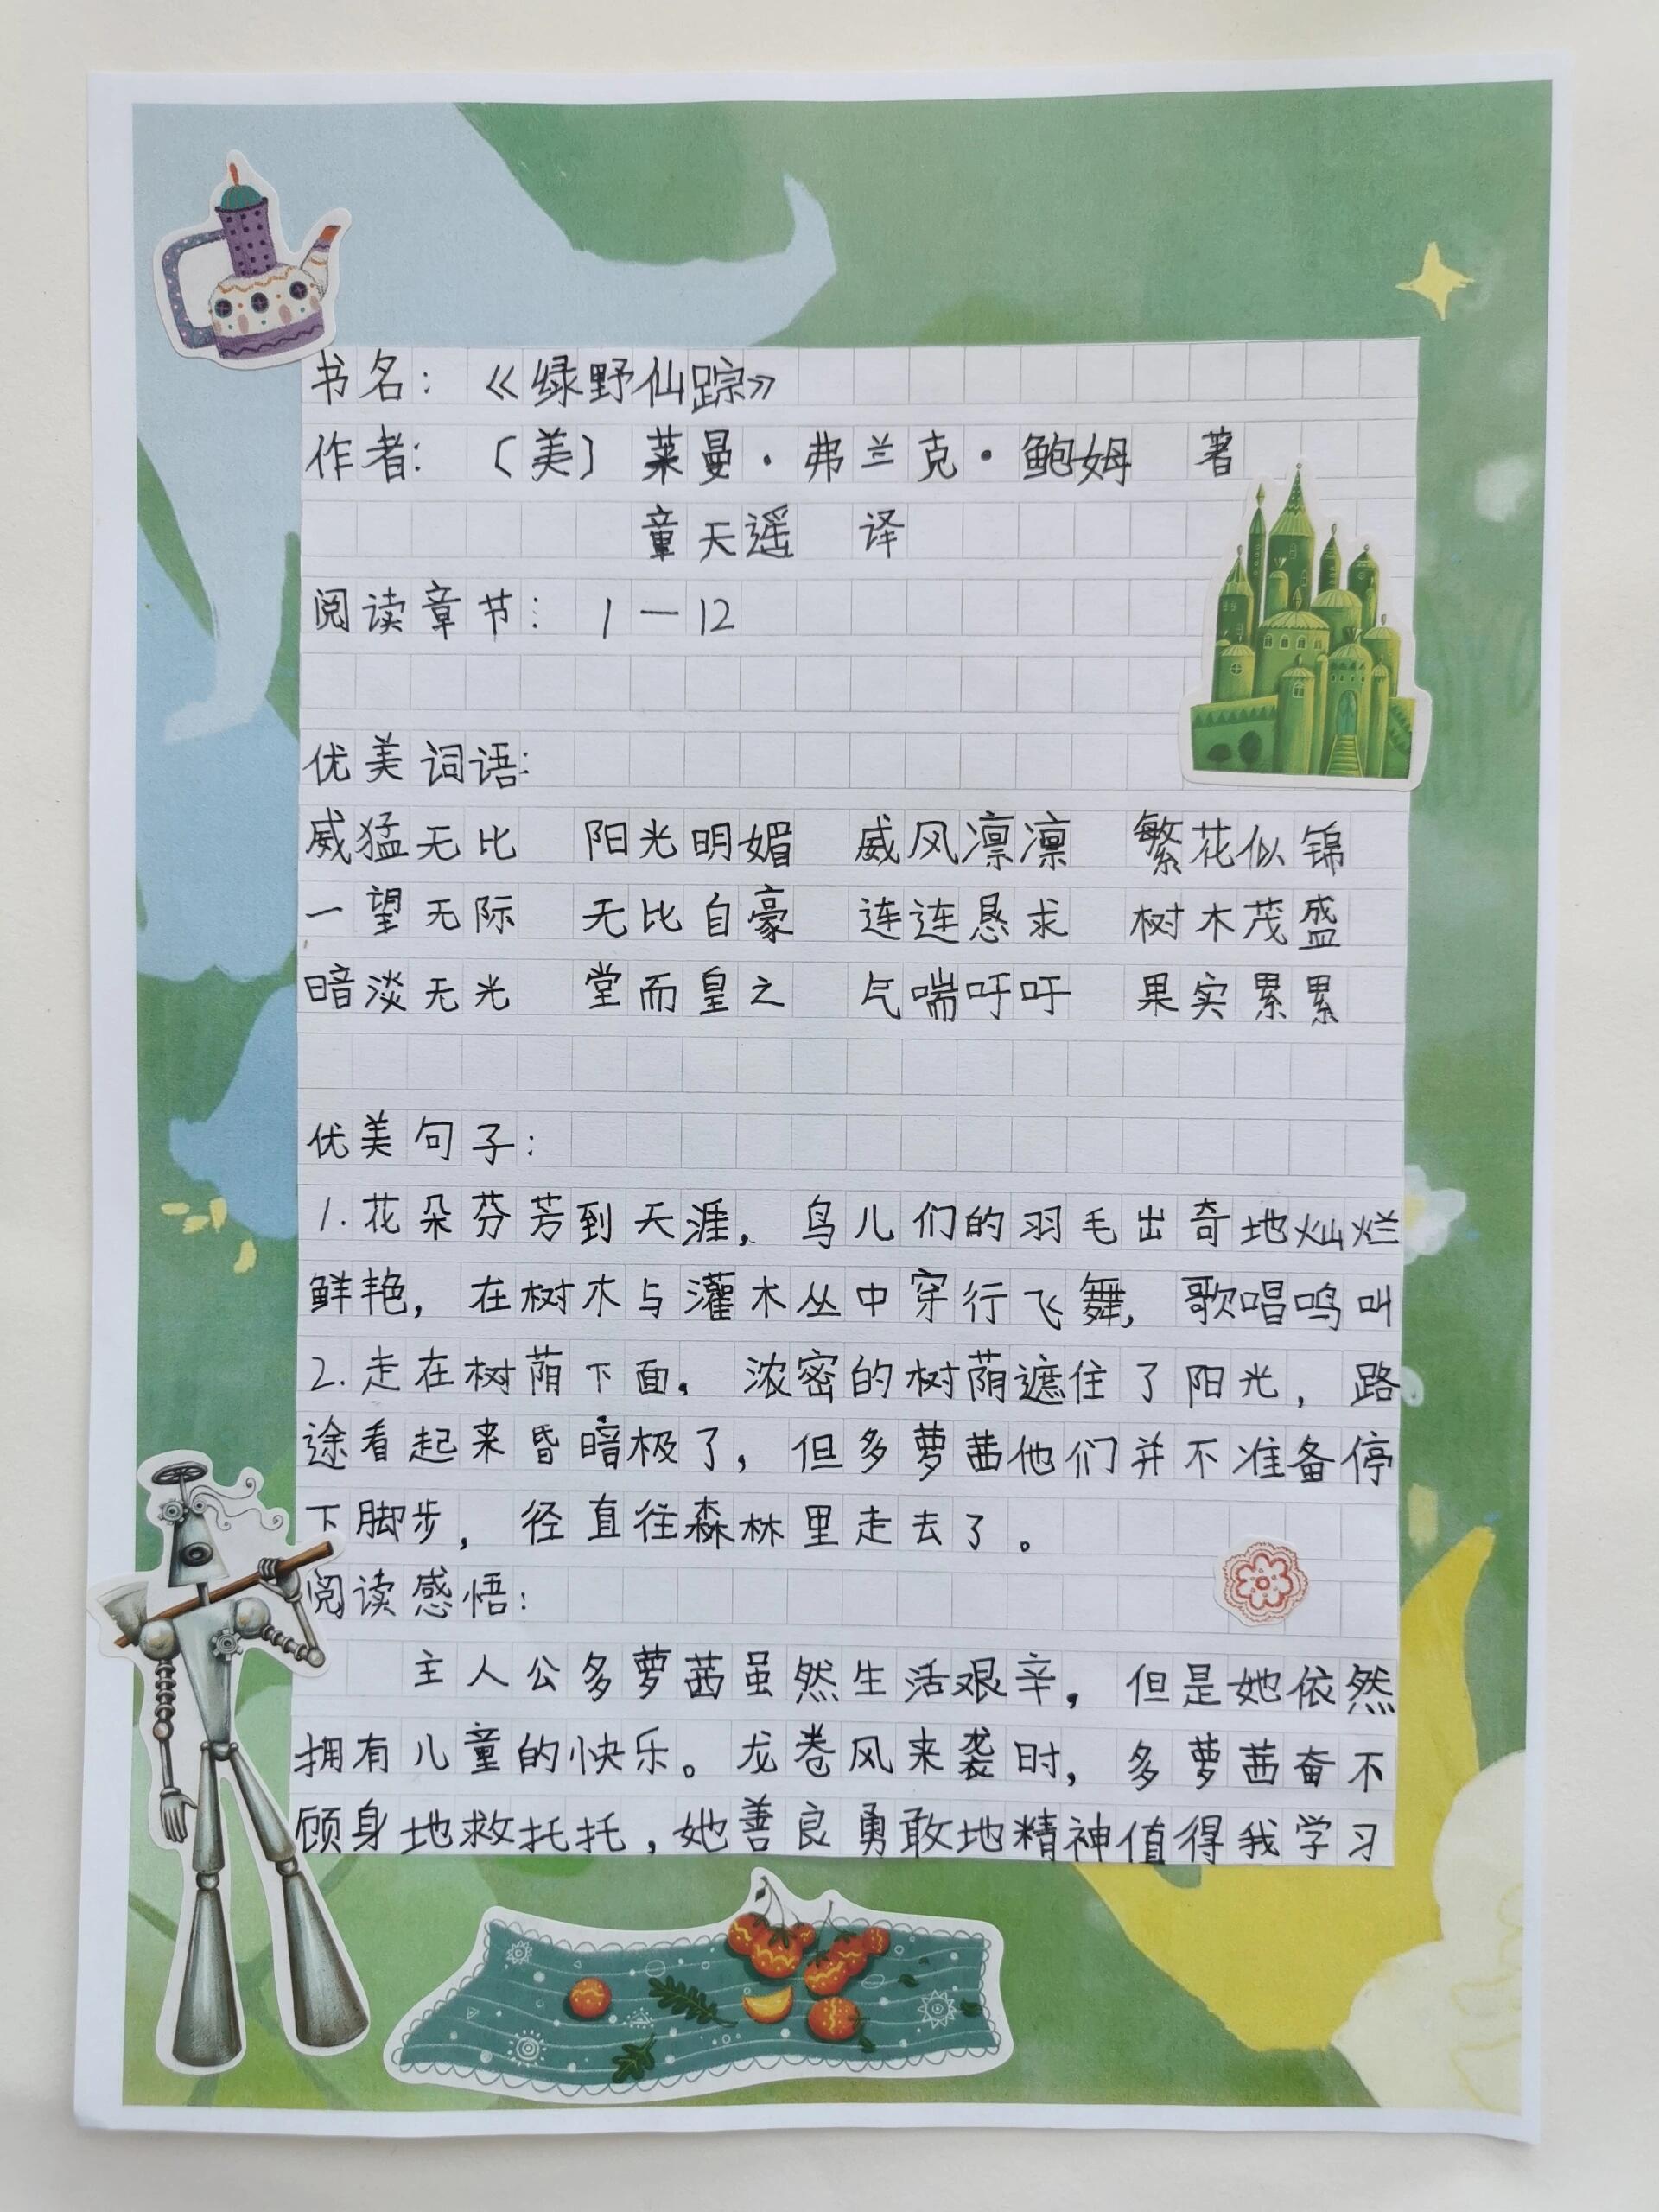 书名：《绿野仙踪》
作者：〔美〕莱曼·弗兰克·鲍姆 著
童天遥 译
阅读章节：1—12
优美词语：
威猛无比 阳光明媚 威风凛凛 繁花似锦
一望无际 无比自豪 连连恳求 树木茂盛
暗淡无光 堂而皇之 气喘吁吁 果实累累
优美句子：
1.花朵芬芳到天涯，鸟儿们的羽毛出奇地灿烂
鲜艳，在树木与灌木丛中穿行飞舞，歌唱鸣叫
2.走在树荫下面，浓密的树荫遮住了阳光，路
途看起来昏暗极了，但多萝茜他们并不准备停
下脚步，径直往森林里走去了。
阅读感悟：
主人公多萝茜虽然生活艰辛，但是她依然
拥有儿童的快乐。龙卷风来袭时，多萝茜奋不
顾身地救托托，她善良勇敢地精神值得我学习